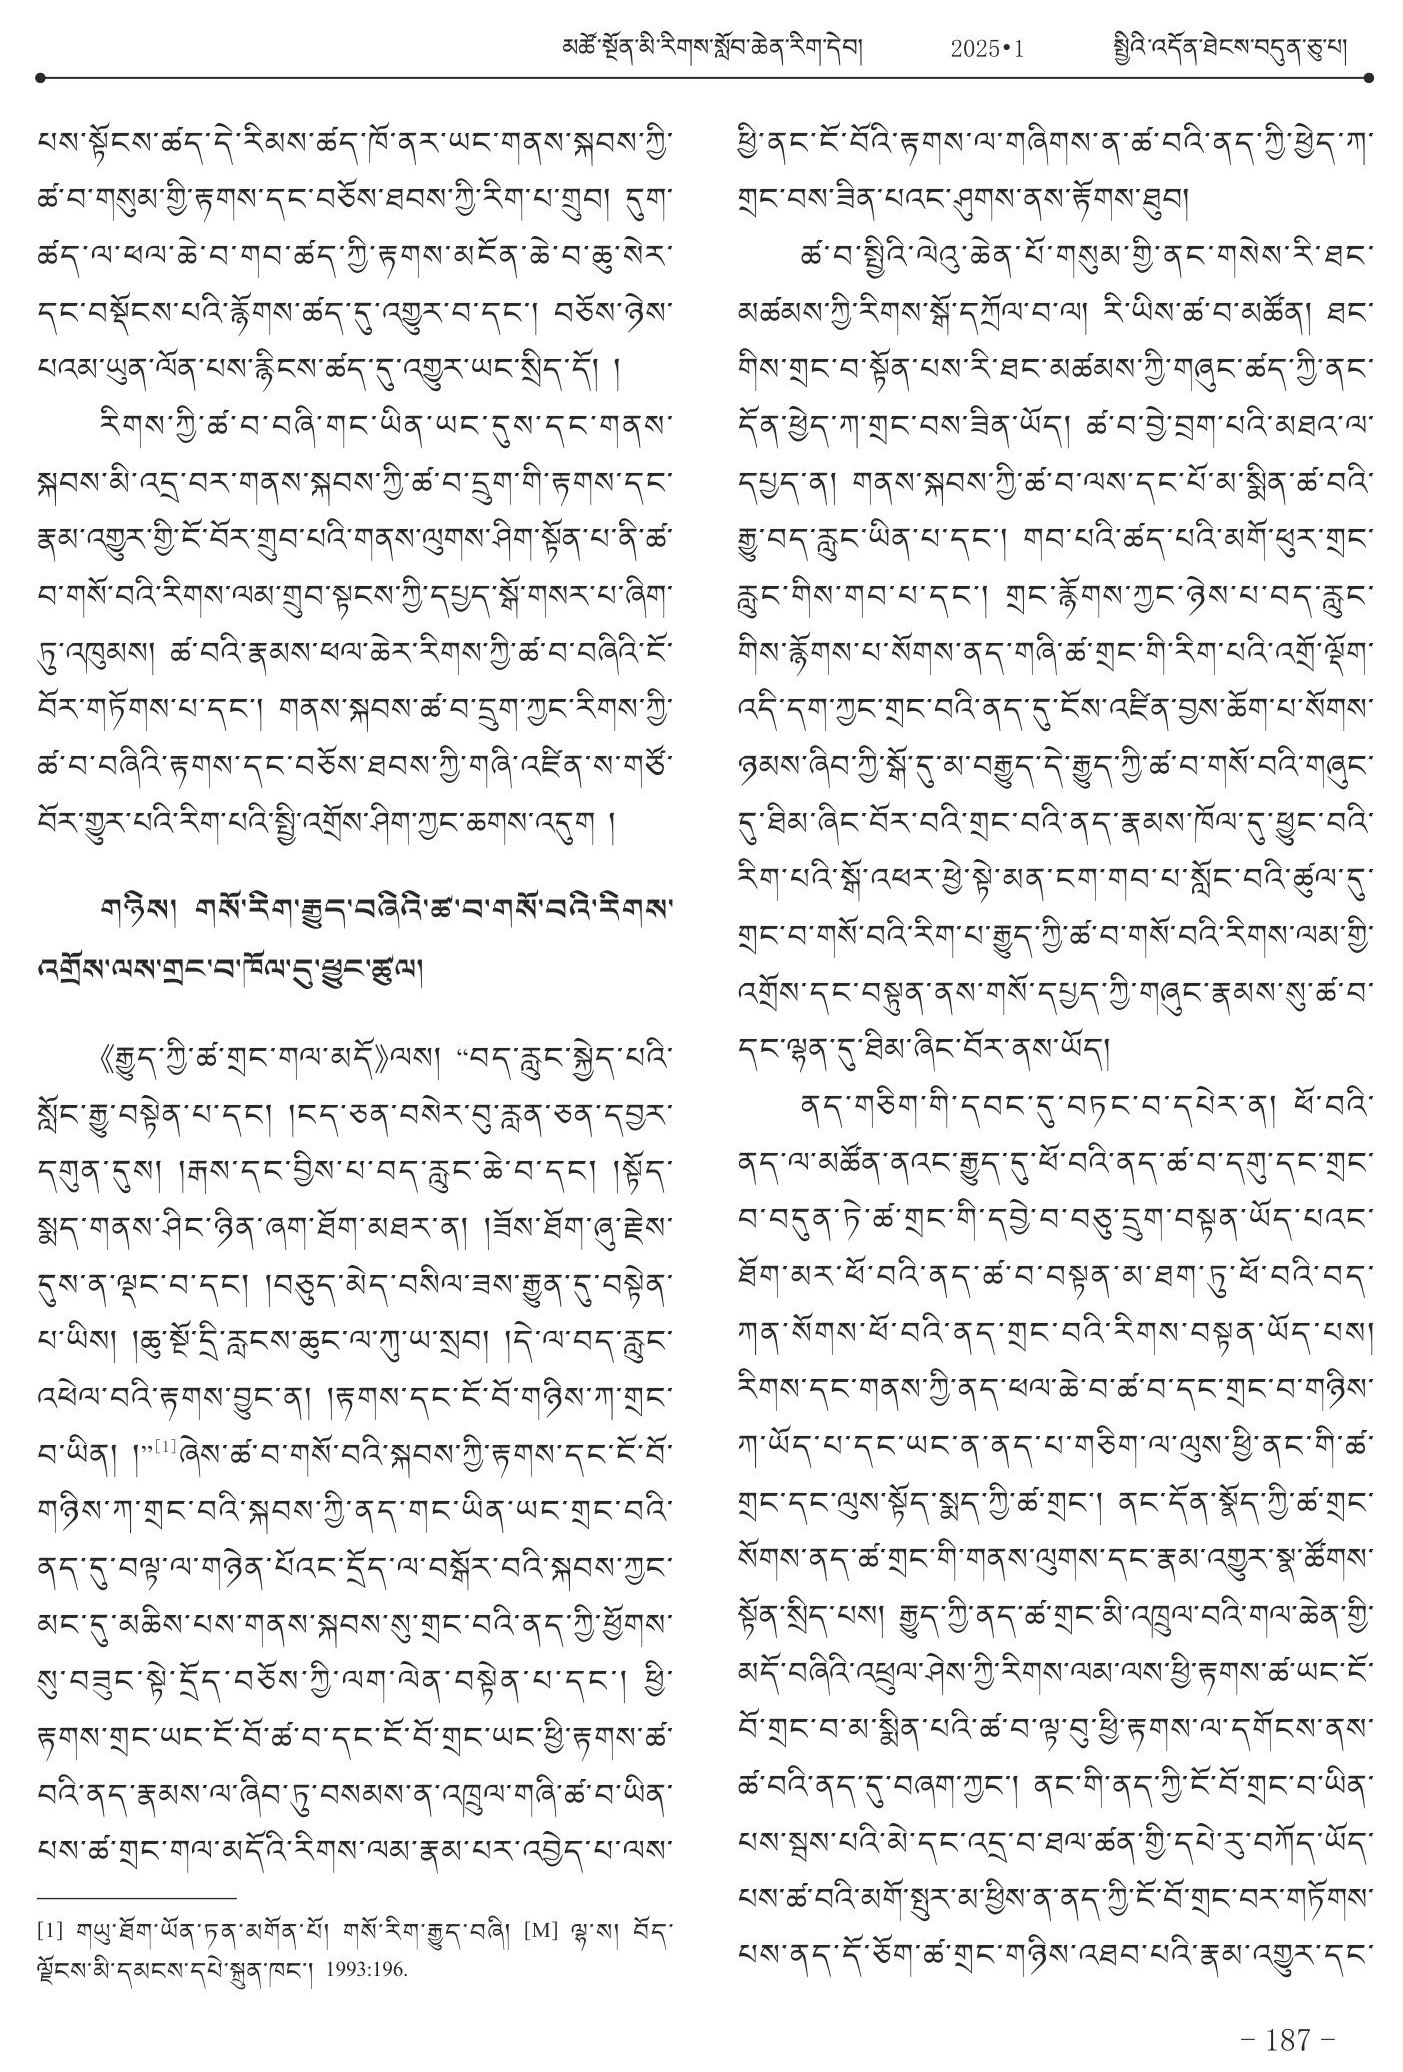 མཚོ་སྔོན་མི་རིགས་སློབ་ཆེན་རིག་དེབ། 2025•1 སྤྱིའི་འདོན་ཐེངས་བདུན་ཅུ་པ།
པས་སྟོངས་ཚད་དེ་རིམས་ཚད་ཁོ་ནར་ཡང་གནས་སྐབས་ཀྱི་
ཚ་བ་གསུམ་གྱི་རྟགས་དང་བཅོས་ཐབས་ཀྱི་རིག་པ་གྲུབ། དུག་
ཚད་ལ་ཕལ་ཆེ་བ་གབ་ཚད་ཀྱི་རྟགས་མངོན་ཆེ་བ་ཆུ་སེར་
དང་བསྡོངས་པའི་རྙོགས་ཚད་དུ་འགྱུར་བ་དང་། བཅོས་ཉེས་
པའམ་ཡུན་ལོན་པས་རྙིངས་ཚད་དུ་འགྱུར་ཡང་སྲིད་དོ། །
རིགས་ཀྱི་ཚ་བ་བཞི་གང་ཡིན་ཡང་དུས་དང་གནས་
སྐབས་མི་འདྲ་བར་གནས་སྐབས་ཀྱི་ཚ་བ་དྲུག་གི་རྟགས་དང་
རྣམ་འགྱུར་གྱི་ངོ་བོར་གྲུབ་པའི་གནས་ལུགས་ཤིག་སྟོན་པ་ནི་ཚ་
བ་གསོ་བའི་རིགས་ལམ་གྲུབ་སྟངས་ཀྱི་དཔྱད་སྒོ་གསར་པ་ཞིག་
ཏུ་འཁུམས། ཚ་བའི་རྣམས་ཕལ་ཆེར་རིགས་ཀྱི་ཚ་བ་བཞིའི་ངོ་
བོར་གཏོགས་པ་དང་། གནས་སྐབས་ཚ་བ་དྲུག་ཀྱང་རིགས་ཀྱི་
ཚ་བ་བཞིའི་རྟགས་དང་བཅོས་ཐབས་ཀྱི་གཞི་འཛིན་ས་གཙོ་
བོར་གྱུར་པའི་རིག་པའི་སྤྱི་འགྲོས་ཤིག་ཀྱང་ཆགས་འདུག །
གཉིས། གསོ་རིག་རྒྱུད་བཞིའི་ཚ་བ་གསོ་བའི་རིགས་
འགྲོས་ལས་གྲང་བ་ཁོལ་དུ་ཕྱུང་ཚུལ།
《རྒྱུད་ཀྱི་ཚ་གྲང་གལ་མདོ》ལས། “བད་རླུང་སྐྱེད་པའི་
སློང་རྒྱུ་བསྟེན་པ་དང། །ངད་ཅན་བསེར་བུ་རླན་ཅན་དབྱར་
དགུན་དུས། །རྒས་དང་བྱིས་པ་བད་རླུང་ཆེ་བ་དང། །སྟོད་
སྨད་གནས་ཤིང་ཉིན་ཞག་ཐོག་མཐར་ན། །ཟོས་ཐོག་ཞུ་རྗེས་
དུས་ན་ལྡང་བ་དང། །བཅུད་མེད་བསིལ་ཟས་རྒྱུན་དུ་བསྟེན་
པ་ཡིས། །ཆུ་སྔོ་དྲི་རླངས་ཆུང་ལ་ཀུ་ཡ་སྲབ། །དེ་ལ་བད་རླུང་
འཕེལ་བའི་རྟགས་བྱུང་ན། །རྟགས་དང་ངོ་བོ་གཉིས་ཀ་གྲང་
བ་ཡིན། །”[1]ཞེས་ཚ་བ་གསོ་བའི་སྐབས་ཀྱི་རྟགས་དང་ངོ་བོ་
གཉིས་ཀ་གྲང་བའི་སྐབས་ཀྱི་ནད་གང་ཡིན་ཡང་གྲང་བའི་
ནད་དུ་བལྟ་ལ་གཉེན་པོའང་དྲོད་ལ་བསྒོར་བའི་སྐབས་ཀྱང་
མང་དུ་མཆིས་པས་གནས་སྐབས་སུ་གྲང་བའི་ནད་ཀྱི་ཕྱོགས་
སུ་བཟུང་སྟེ་དྲོད་བཅོས་ཀྱི་ལག་ལེན་བསྟེན་པ་དང་། ཕྱི་
རྟགས་གྲང་ཡང་ངོ་བོ་ཚ་བ་དང་ངོ་བོ་གྲང་ཡང་ཕྱི་རྟགས་ཚ་
བའི་ནད་རྣམས་ལ་ཞིབ་ཏུ་བསམས་ན་འཁྲུལ་གཞི་ཚ་བ་ཡིན་
པས་ཚ་གྲང་གལ་མདོའི་རིགས་ལམ་རྣམ་པར་འབྱེད་པ་ལས་
[1] གཡུ་ཐོག་ཡོན་ཏན་མགོན་པོ། གསོ་རིག་རྒྱུད་བཞི། [M] ལྷ་ས། བོད་
ལྗོངས་མི་དམངས་དཔེ་སྐྲུན་ཁང་། 1993:196.
ཕྱི་ནང་ངོ་བོའི་རྟགས་ལ་གཞིགས་ན་ཚ་བའི་ནད་ཀྱི་ཕྱེད་ཀ་
གྲང་བས་ཟིན་པའང་ཤུགས་ནས་རྟོགས་ཐུབ།
ཚ་བ་སྤྱིའི་ལེའུ་ཆེན་པོ་གསུམ་གྱི་ནང་གསེས་རི་ཐང་
མཚམས་ཀྱི་རིགས་སྒོ་དཀྲོལ་བ་ལ། རི་ཡིས་ཚ་བ་མཚོན། ཐང་
གིས་གྲང་བ་སྟོན་པས་རི་ཐང་མཚམས་ཀྱི་གཞུང་ཚད་ཀྱི་ནང་
དོན་ཕྱེད་ཀ་གྲང་བས་ཟིན་ཡོད། ཚ་བ་བྱེ་བྲག་པའི་མཐའ་ལ་
དཔྱད་ན། གནས་སྐབས་ཀྱི་ཚ་བ་ལས་དང་པོ་མ་སྨིན་ཚ་བའི་
རྒྱུ་བད་རླུང་ཡིན་པ་དང་། གབ་པའི་ཚད་པའི་མགོ་ཕུར་གྲང་
རླུང་གིས་གབ་པ་དང་། གྲང་རྙོགས་ཀྱང་ཉེས་པ་བད་རླུང་
གིས་རྙོགས་པ་སོགས་ནད་གཞི་ཚ་གྲང་གི་རིག་པའི་འགྲོ་ལྡོག་
འདི་དག་ཀྱང་གྲང་བའི་ནད་དུ་ངོས་འཛིན་བྱས་ཆོག་པ་སོགས་
ཉམས་ཞིབ་ཀྱི་སྒོ་དུ་མ་བརྒྱུད་དེ་རྒྱུད་ཀྱི་ཚ་བ་གསོ་བའི་གཞུང་
དུ་ཐིམ་ཞིང་བོར་བའི་གྲང་བའི་ནད་རྣམས་ཁོལ་དུ་ཕྱུང་བའི་
རིག་པའི་སྒོ་འཕར་ཕྱེ་སྟེ་མན་ངག་གབ་པ་སློང་བའི་ཚུལ་དུ་
གྲང་བ་གསོ་བའི་རིག་པ་རྒྱུད་ཀྱི་ཚ་བ་གསོ་བའི་རིགས་ལམ་གྱི་
འགྲོས་དང་བསྟུན་ནས་གསོ་དཔྱད་ཀྱི་གཞུང་རྣམས་སུ་ཚ་བ་
དང་ལྷན་དུ་ཐིམ་ཞིང་བོར་ནས་ཡོད།
ནད་གཅིག་གི་དབང་དུ་བཏང་བ་དཔེར་ན། ཕོ་བའི་
ནད་ལ་མཚོན་ནའང་རྒྱུད་དུ་ཕོ་བའི་ནད་ཚ་བ་དགུ་དང་གྲང་
བ་བདུན་ཏེ་ཚ་གྲང་གི་དབྱེ་བ་བཅུ་དྲུག་བསྟན་ཡོད་པའང་
ཐོག་མར་ཕོ་བའི་ནད་ཚ་བ་བསྟན་མ་ཐག་ཏུ་ཕོ་བའི་བད་
ཀན་སོགས་ཕོ་བའི་ནད་གྲང་བའི་རིགས་བསྟན་ཡོད་པས།
རིགས་དང་གནས་ཀྱི་ནད་ཕལ་ཆེ་བ་ཚ་བ་དང་གྲང་བ་གཉིས་
ཀ་ཡོད་པ་དང་ཡང་ན་ནད་པ་གཅིག་ལ་ལུས་ཕྱི་ནང་གི་ཚ་
གྲང་དང་ལུས་སྟོད་སྨད་ཀྱི་ཚ་གྲང་། ནང་དོན་སྣོད་ཀྱི་ཚ་གྲང་
སོགས་ནད་ཚ་གྲང་གི་གནས་ལུགས་དང་རྣམ་འགྱུར་སྣ་ཚོགས་
སྟོན་སྲིད་པས། རྒྱུད་ཀྱི་ནད་ཚ་གྲང་མི་འཁྲུལ་བའི་གལ་ཆེན་གྱི་
མདོ་བཞིའི་འཕྲུལ་ཤེས་ཀྱི་རིགས་ལམ་ལས་ཕྱི་རྟགས་ཚ་ཡང་ངོ་
བོ་གྲང་བ་མ་སྨིན་པའི་ཚ་བ་ལྟ་བུ་ཕྱི་རྟགས་ལ་དགོངས་ནས་
ཚ་བའི་ནད་དུ་བཞག་ཀྱང་། ནང་གི་ནད་ཀྱི་ངོ་བོ་གྲང་བ་ཡིན་
པས་སྦས་པའི་མེ་དང་འདྲ་བ་ཐལ་ཚན་གྱི་དཔེ་རུ་བཀོད་ཡོད་
པས་ཚ་བའི་མགོ་སྤུར་མ་ཕྱིས་ན་ནད་ཀྱི་ངོ་བོ་གྲང་བར་གཏོགས་
པས་ནད་དོ་ཅོག་ཚ་གྲང་གཉིས་འཐབ་པའི་རྣམ་འགྱུར་དང་
– 187 –